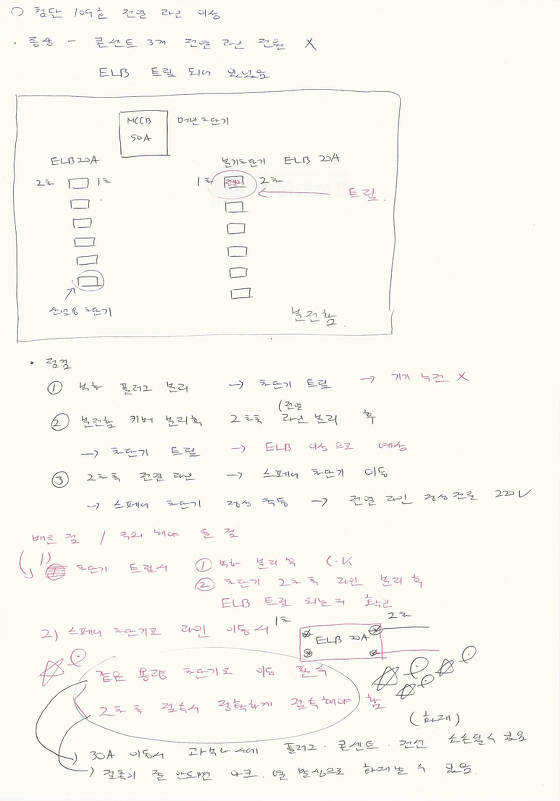 ○ 첨단 109호 전열 라인 이상
· 증상 - 콘센트 3개 전열 라인 전원 X
ELB 트립 되어 있었음
MCCB 50A 메인차단기
ELB 20A
분기차단기 ELB 20A
2차 1차
1차 전열 2차
트립
스페어 차단기
분전함
· 점검
① 부하 플러그 분리 → 차단기 트립 → 기기 누전 X
② 분전함 커버 분리후 2차측 (전열 라인 분리 후
→ 차단기 트립 → ELB 이상으로 예상
③ 2차측 전열 라인 → 스페어 차단기 이동
→ 스페어 차단기 정상 작동 → 전열 라인 정상전로 220V
배운 점 / 주의 해야 할 점
1) 차단기 트립시 ① 부하 분리 후
② 차단기 2차측 라인 분리 후
ELB 트립 되는지 확인
2) 스페어 차단기로 라인 이동시
1차 ELB 20A 2차
같은 용량 차단기로 이동 필수
2차측 접속시 정확하게 접속해야 함
(화재)
30A 이동시 과부하시에 플러그·콘센트·전선 소손될 수 있음
접속이 잘 안되면 아크·열 발생으로 화재 날 수 있음.